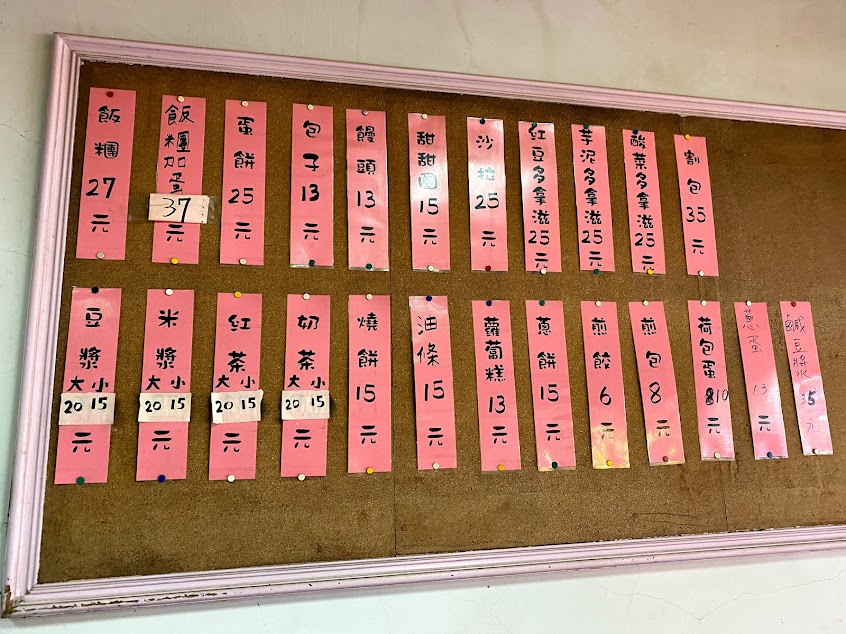 飯糰27元
飯糰加蛋37元
蛋餅25元
包子13元
饅頭13元
甜甜圈15元
沙拉25元
紅豆多拿滋25元
芋泥多拿滋25元
酸菜多拿滋25元
割包35元
豆漿大小20 15元
米漿大小20 15元
紅茶大小20 15元
奶茶大小20 15元
燒餅15元
油條15元
蘿蔔糕13元
蔥餅15元
煎餃6元
煎包8元
荷包蛋10元
蔥蛋13元
鹹豆漿35元